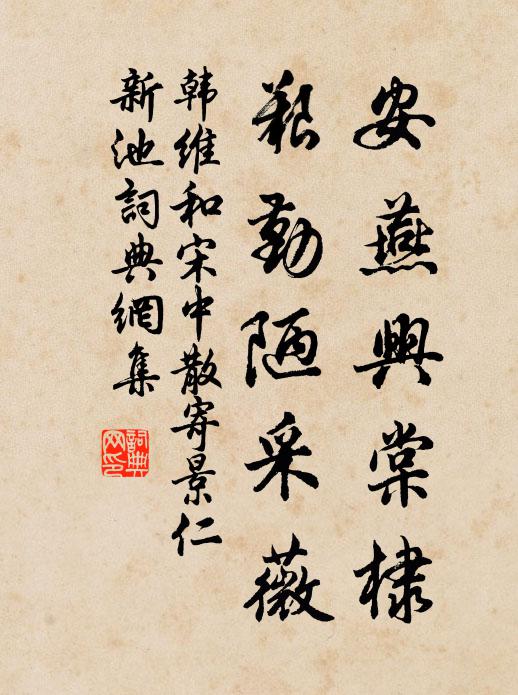 安燕興棠棣
艱勤陋采薇
韩維和宋中散寄景仁
新池詞典網集
詞典网印